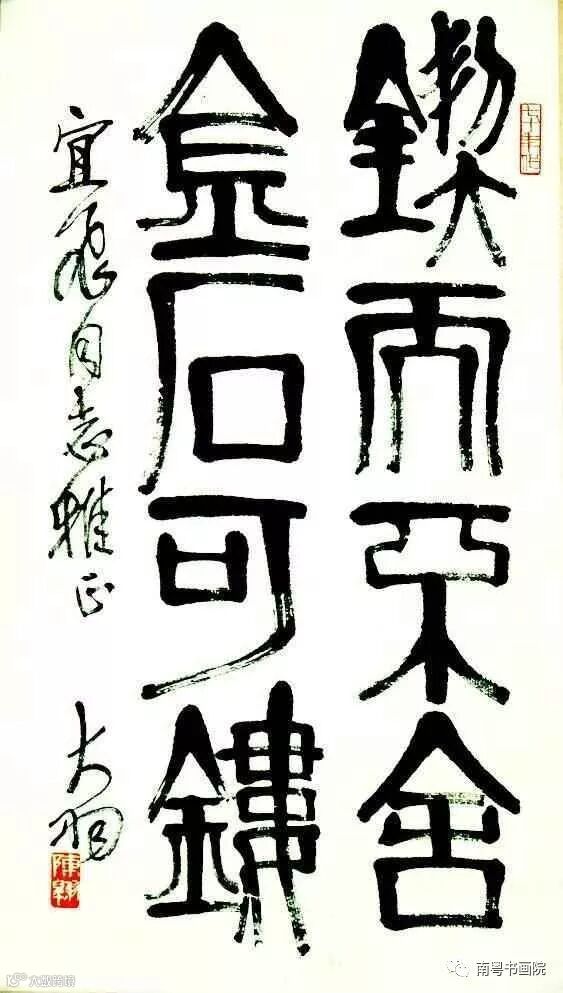 鍥而不舍
金石可鏤
宜飛同志雅正
大羽
陳翱
南粤书画院